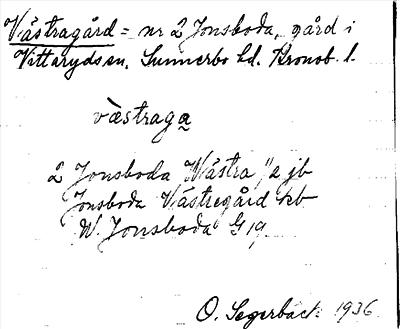 Västragård = nr 2 Jonsboda, gård i
Vittaryds sn, Sunnerbo hd. Kronob. l.
västraga
2 Jonsboda Wästra 1/2 jb
Jonsboda Västregård kb
W. Jonsboda G 19
O. Segerbäck 1936